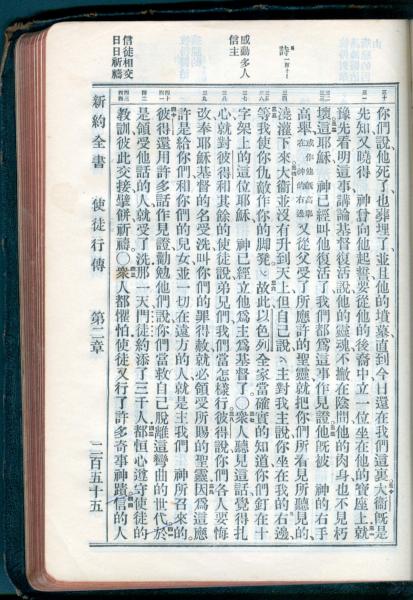 詩一百十1
感動多人
信主
信徒相交
日日祈禱
你們說他死了也葬埋了並且他的墳墓直到今日還在我們這裏大衞旣是
先知又曉得 神曾向他起誓要從他的後裔中立一位坐在他的寶座上就
豫先看明這事講論基督復活說他的靈魂不撇在陰間他的肉身也不見朽
壞這耶穌 神已經叫他復活了我們都爲這事作見證他旣被 神的右手
高舉或作他旣高舉在神的右邊又從父受了所應許的聖靈就把你們所看見所聽見的、
澆灌下來大衞並沒有升到天上但自己說、主對我主說你坐在我的右邊、
等我使你仇敵作你的脚凳、故此以色列全家當確實的知道你們釘在十
字架上的這位耶穌 神已經立他爲主爲基督了○衆人聽見這話覺得扎
心就對彼得和其餘的使徒說弟兄們我們當怎樣行彼得說你們各人要悔
改奉耶穌基督的名受洗叫你們的罪得赦就必領受所賜的聖靈因爲這應
許是給你們和你們的兒女並一切在遠方的人就是主我們 神所召來的
彼得還用許多話作見證勸勉他們說你們當救自己脫離這彎曲的世代於
是領受他話的人就受了洗那一天門徒約添了三千人都恒心遵守使徒的
教訓彼此交接擘餅祈禱○衆人都懼怕使徒又行了許多奇事神蹟信的人
新約全書 使徒行傳 第二章 二百五十五